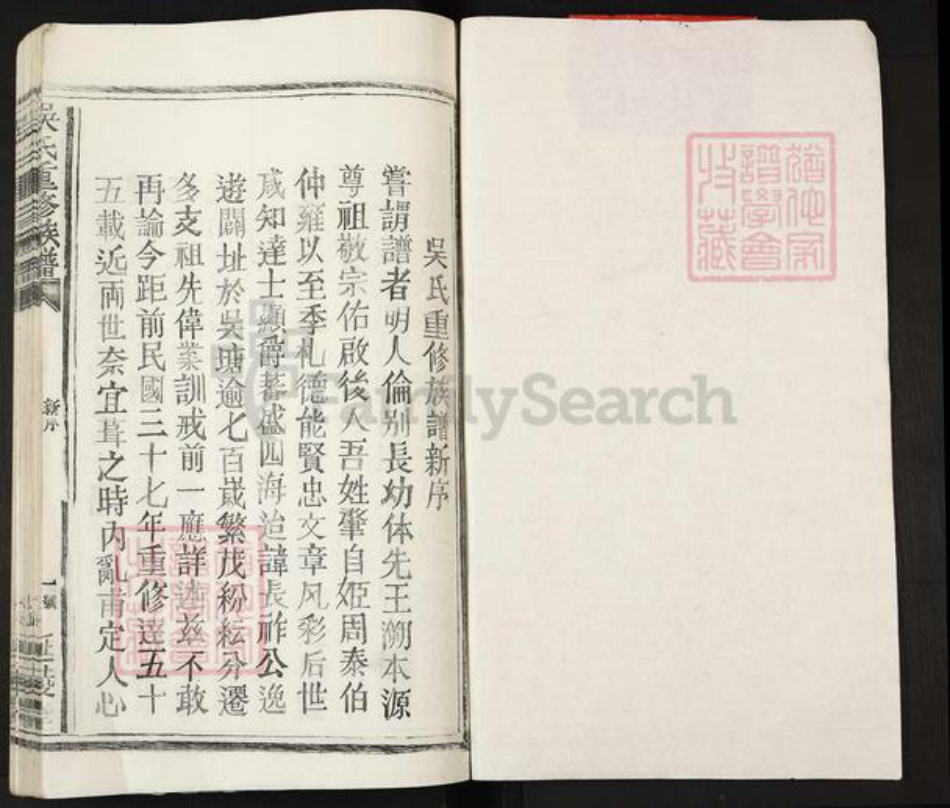 吳氏重修族譜新序
嘗謂譜者明人倫别長幼体先王溯本源
尊祖敬宗佑啟後人吾姓肇自姬周泰伯
仲雍以至季札德能賢忠文章风彩后世
咸知達士顯爵蕃盛四海治諱長祚公逸
遊闢址於吳塘逾七百歲繁茂紛紜分遷
多支祖先偉業訓戒前一應詳述玆不敢
再論今距前民國三十七年重修達五十
五載近兩世奈宜葺之時內亂甫定人心
吳氏重修族譜
新序
猶他家譜學會收藏
FamilySearch